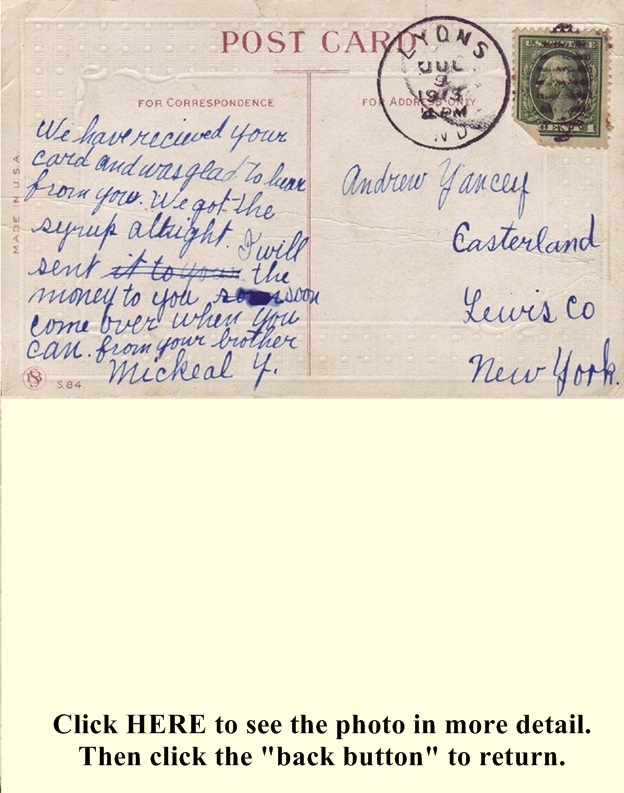 POST CARD
LYONS
JUL
9
1913
4 PM
N.Y.
FOR CORRESPONDENCE
FOR ADDRESS ONLY
MADE IN U.S.A.
We have recieved your
card and was glad to hear
from you. We got the
syrup altright. I will
sent it to your the
money to you soon
come over when you
can. from your brother
Mickeal Y.
S.84
Andrew Yancey
Casterland
Lewis Co
New York.
Click HERE to see the photo in more detail.
Then click the "back button" to return.